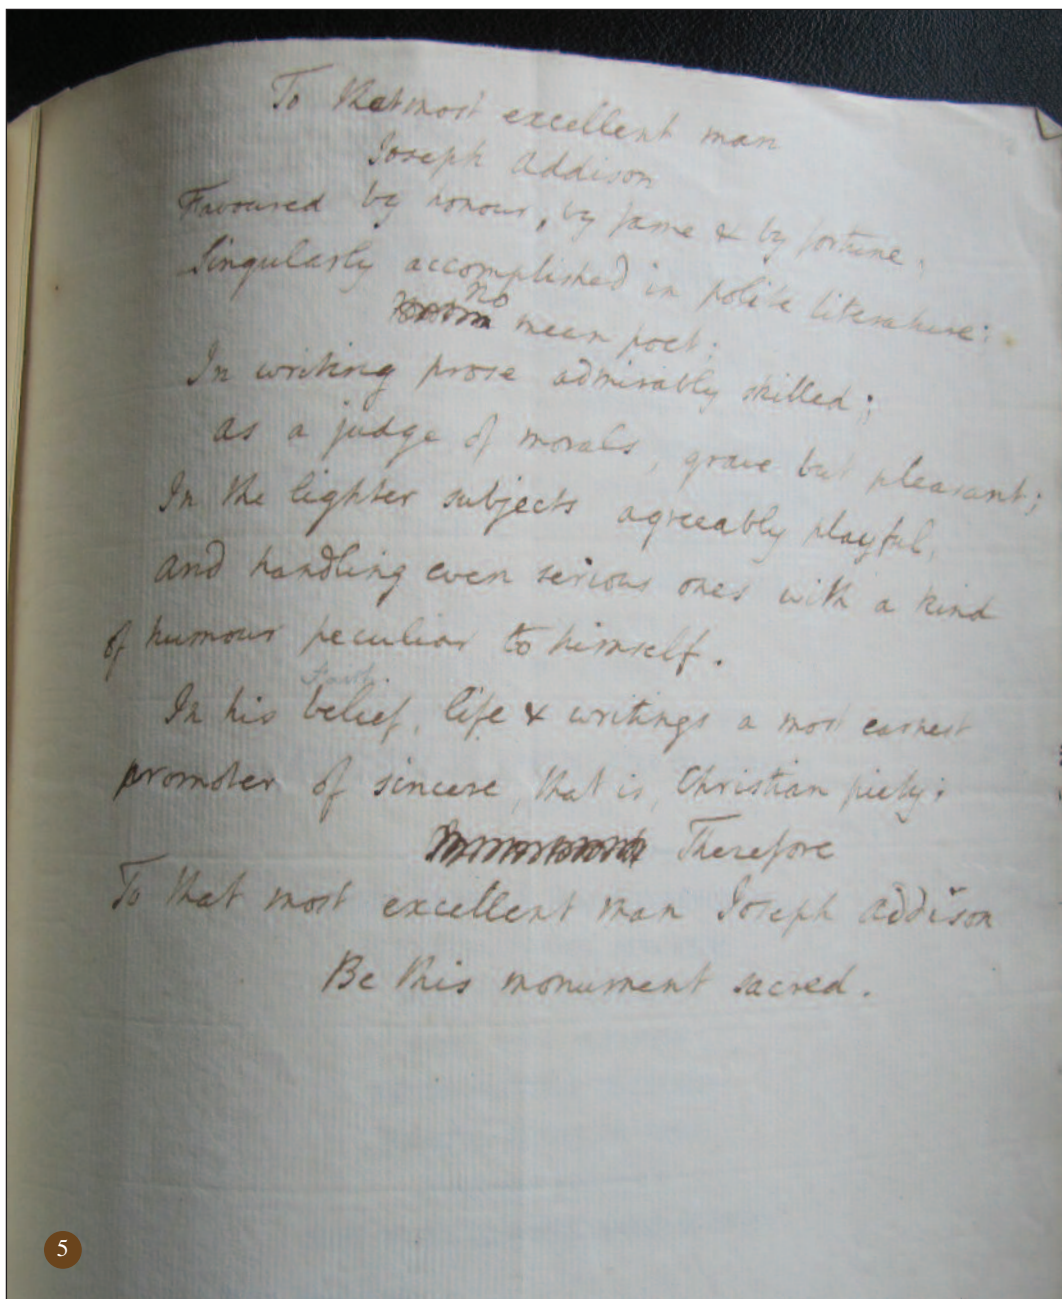 To that most excellent man
Joseph Addison
Favoured by honour, by fame & by fortune,
Singularly accomplished in polite literature;
no
mean poet;
In writing prose admirably skilled;
as a judge of morals, grave but pleasant;
In the lighter subjects agreeably playful,
and handling even serious ones with a kind
of humour peculiar to himself.
Faith
In his belief, life & writings a most earnest
promoter of sincere, that is, Christian piety;
Therefore
To that most excellent man Joseph Addison
Be this monument sacred.
5